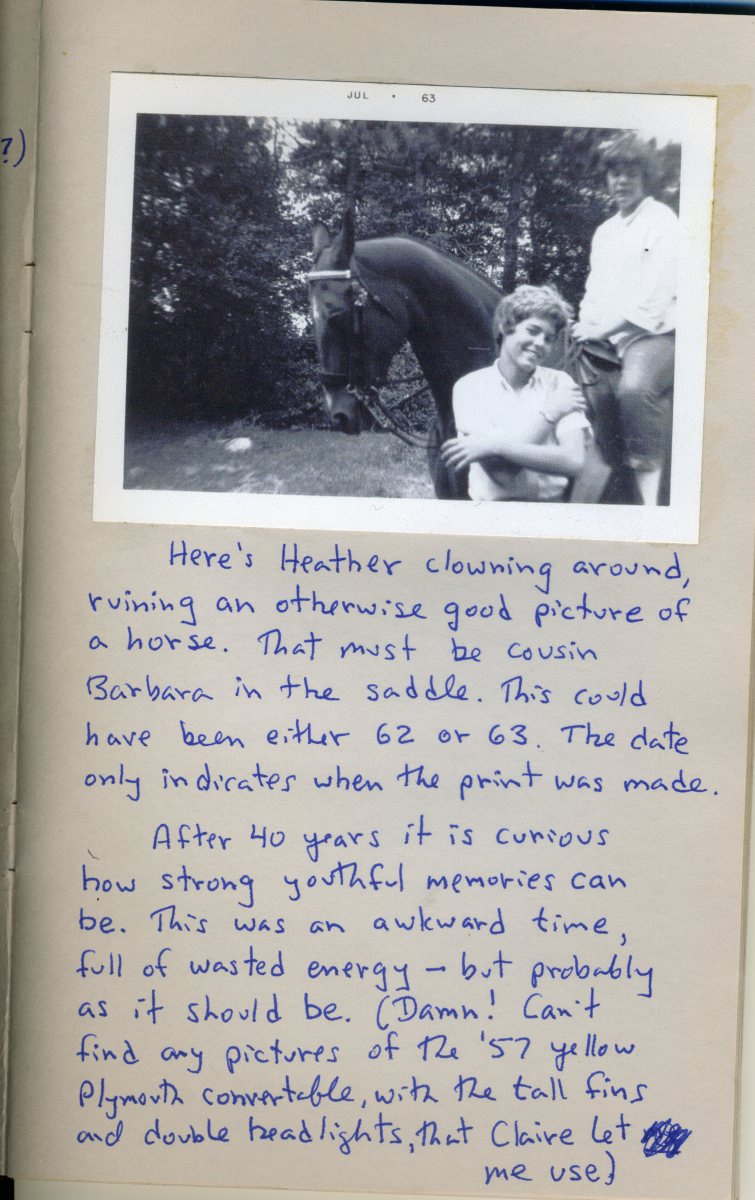 ?)
JUL • 63
Here's Heather clowning around,
ruining an otherwise good picture of
a horse. That must be cousin
Barbara in the saddle. This could
have been either 62 or 63. The date
only indicates when the print was made.
After 40 years it is curious
how strong youthful memories can
be. This was an awkward time,
full of wasted energy – but probably
as it should be. (Damn! Can't
find any pictures of the '57 yellow
Plymouth convertable, with the tall fins
and double headlights, that Claire let
me use)